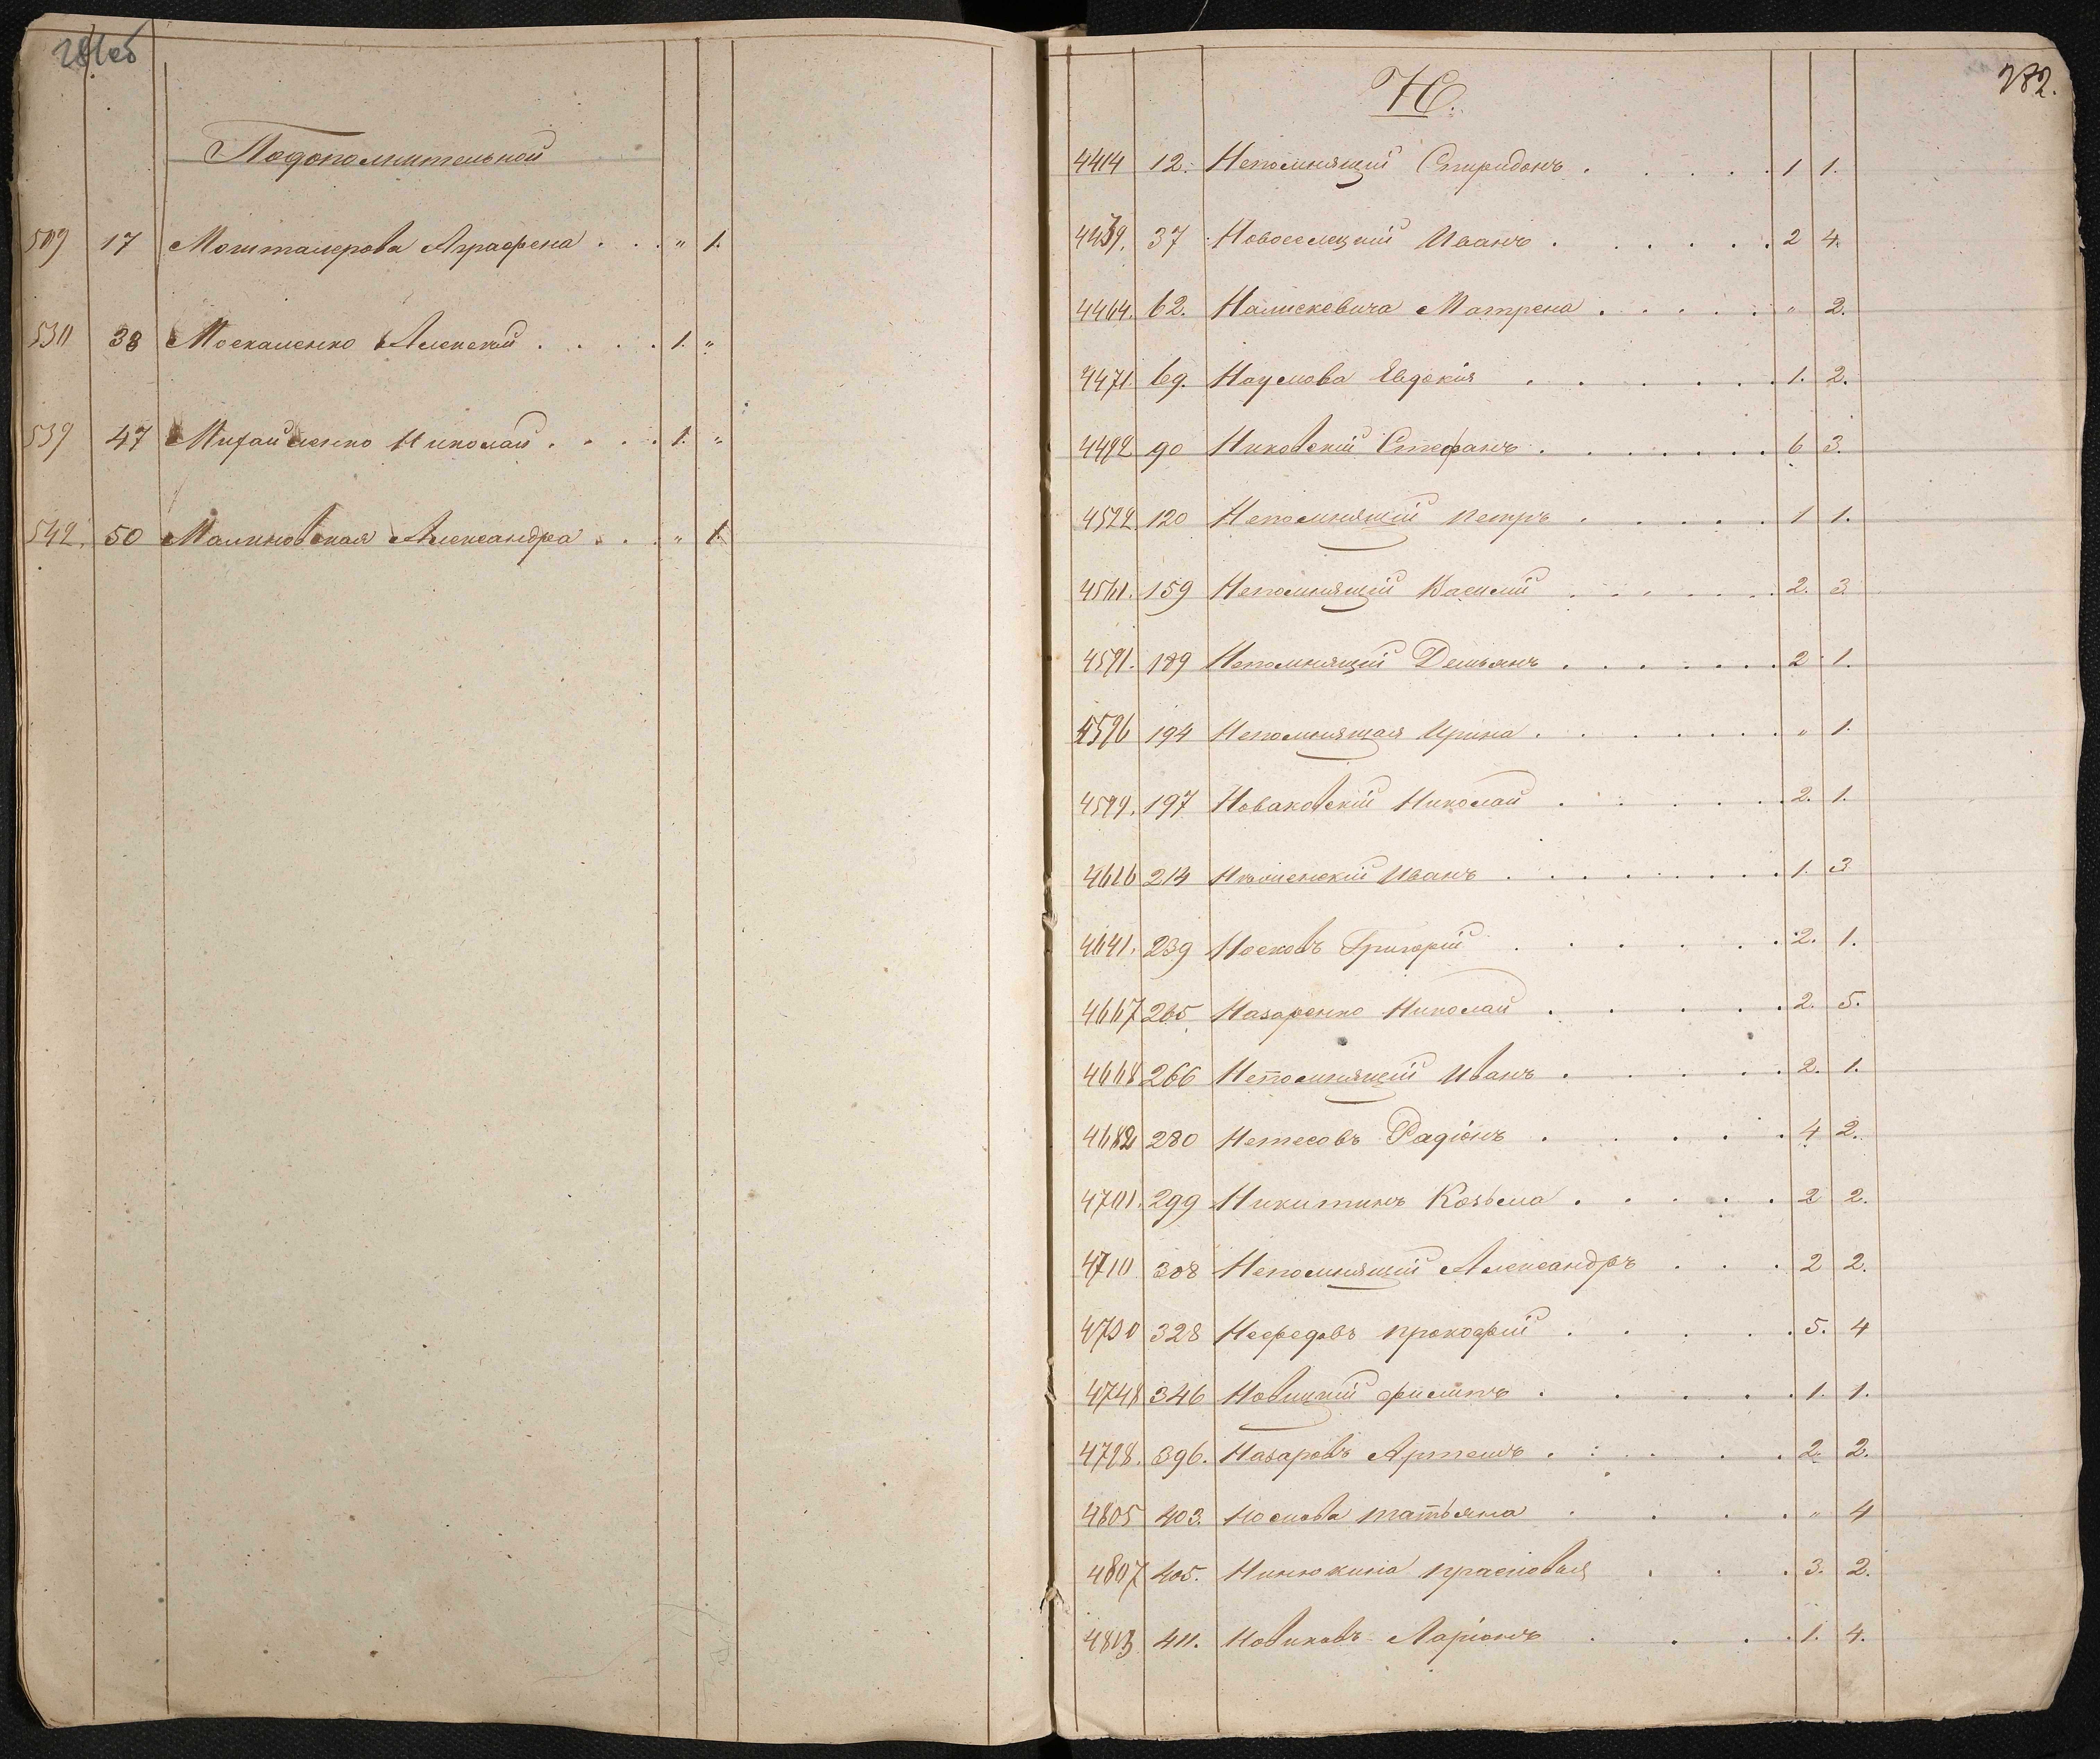 281об
Подополнительной
509 17 Мошталерова Аграфена . . . " 1.
530 38 Москаленко Алексѣй . . . . 1. "
539 47 Михайленко Николай . . . . 1. "
542. 50 Малиновская Александра . . . " 1.
282.
Н.
4414 12. Непомнящій Спиридонъ . . . . . 1 1.
4439. 37 Новоселецкій Иванъ . . . . . . 2 4.
4464. 62. Матрена . . . . . " 2.
4471. 69. Наумова Евдокія . . . . . . 1. 2.
4492 90 Никовскій Стефанъ . . . . . . . 6 3.
4522 120 Непомнящій Петръ . . . . . 1 1.
4561. 159 Непомнящій Василий . . . . . . 2. 3
4591. 189 Непомнящій Демьянъ . . . . . . . 2 1.
4596 194 Непомнящая Ирина . . . . . . . " 1.
4599. 197 Новаковскій Николай . . . . . . 2. 1.
4616 214 Иванъ . . . . . . . . 1. 3
4641. 239 Носковъ Григорій . . . . . . 2. 1.
4667 265 Назаренко Николай . . . . . 2. 5.
4668 266 Непомнящій Иванъ . . . . . 2. 1.
4682 280 Нетесовъ Радіонъ . . . . . 4 2.
4701. 299 Никитинъ Козьма . . . . . 2 2.
4710 308 Непомнящій Александръ . . . 2 2.
4730 328 Нефедовъ Прокофій . . . . . 5. 4
4748 346 Новицкій Филипъ . . . . . 1. 1.
4798. 396. Назаровъ Артемъ . . . . . 2. 2.
4805 403. Носкова Татьяна . . . . " 4
4807 405. Нинюкина Прасковья . . . 3. 2.
4813 411. Новиковъ Ларіонъ . . . . 1. 4.